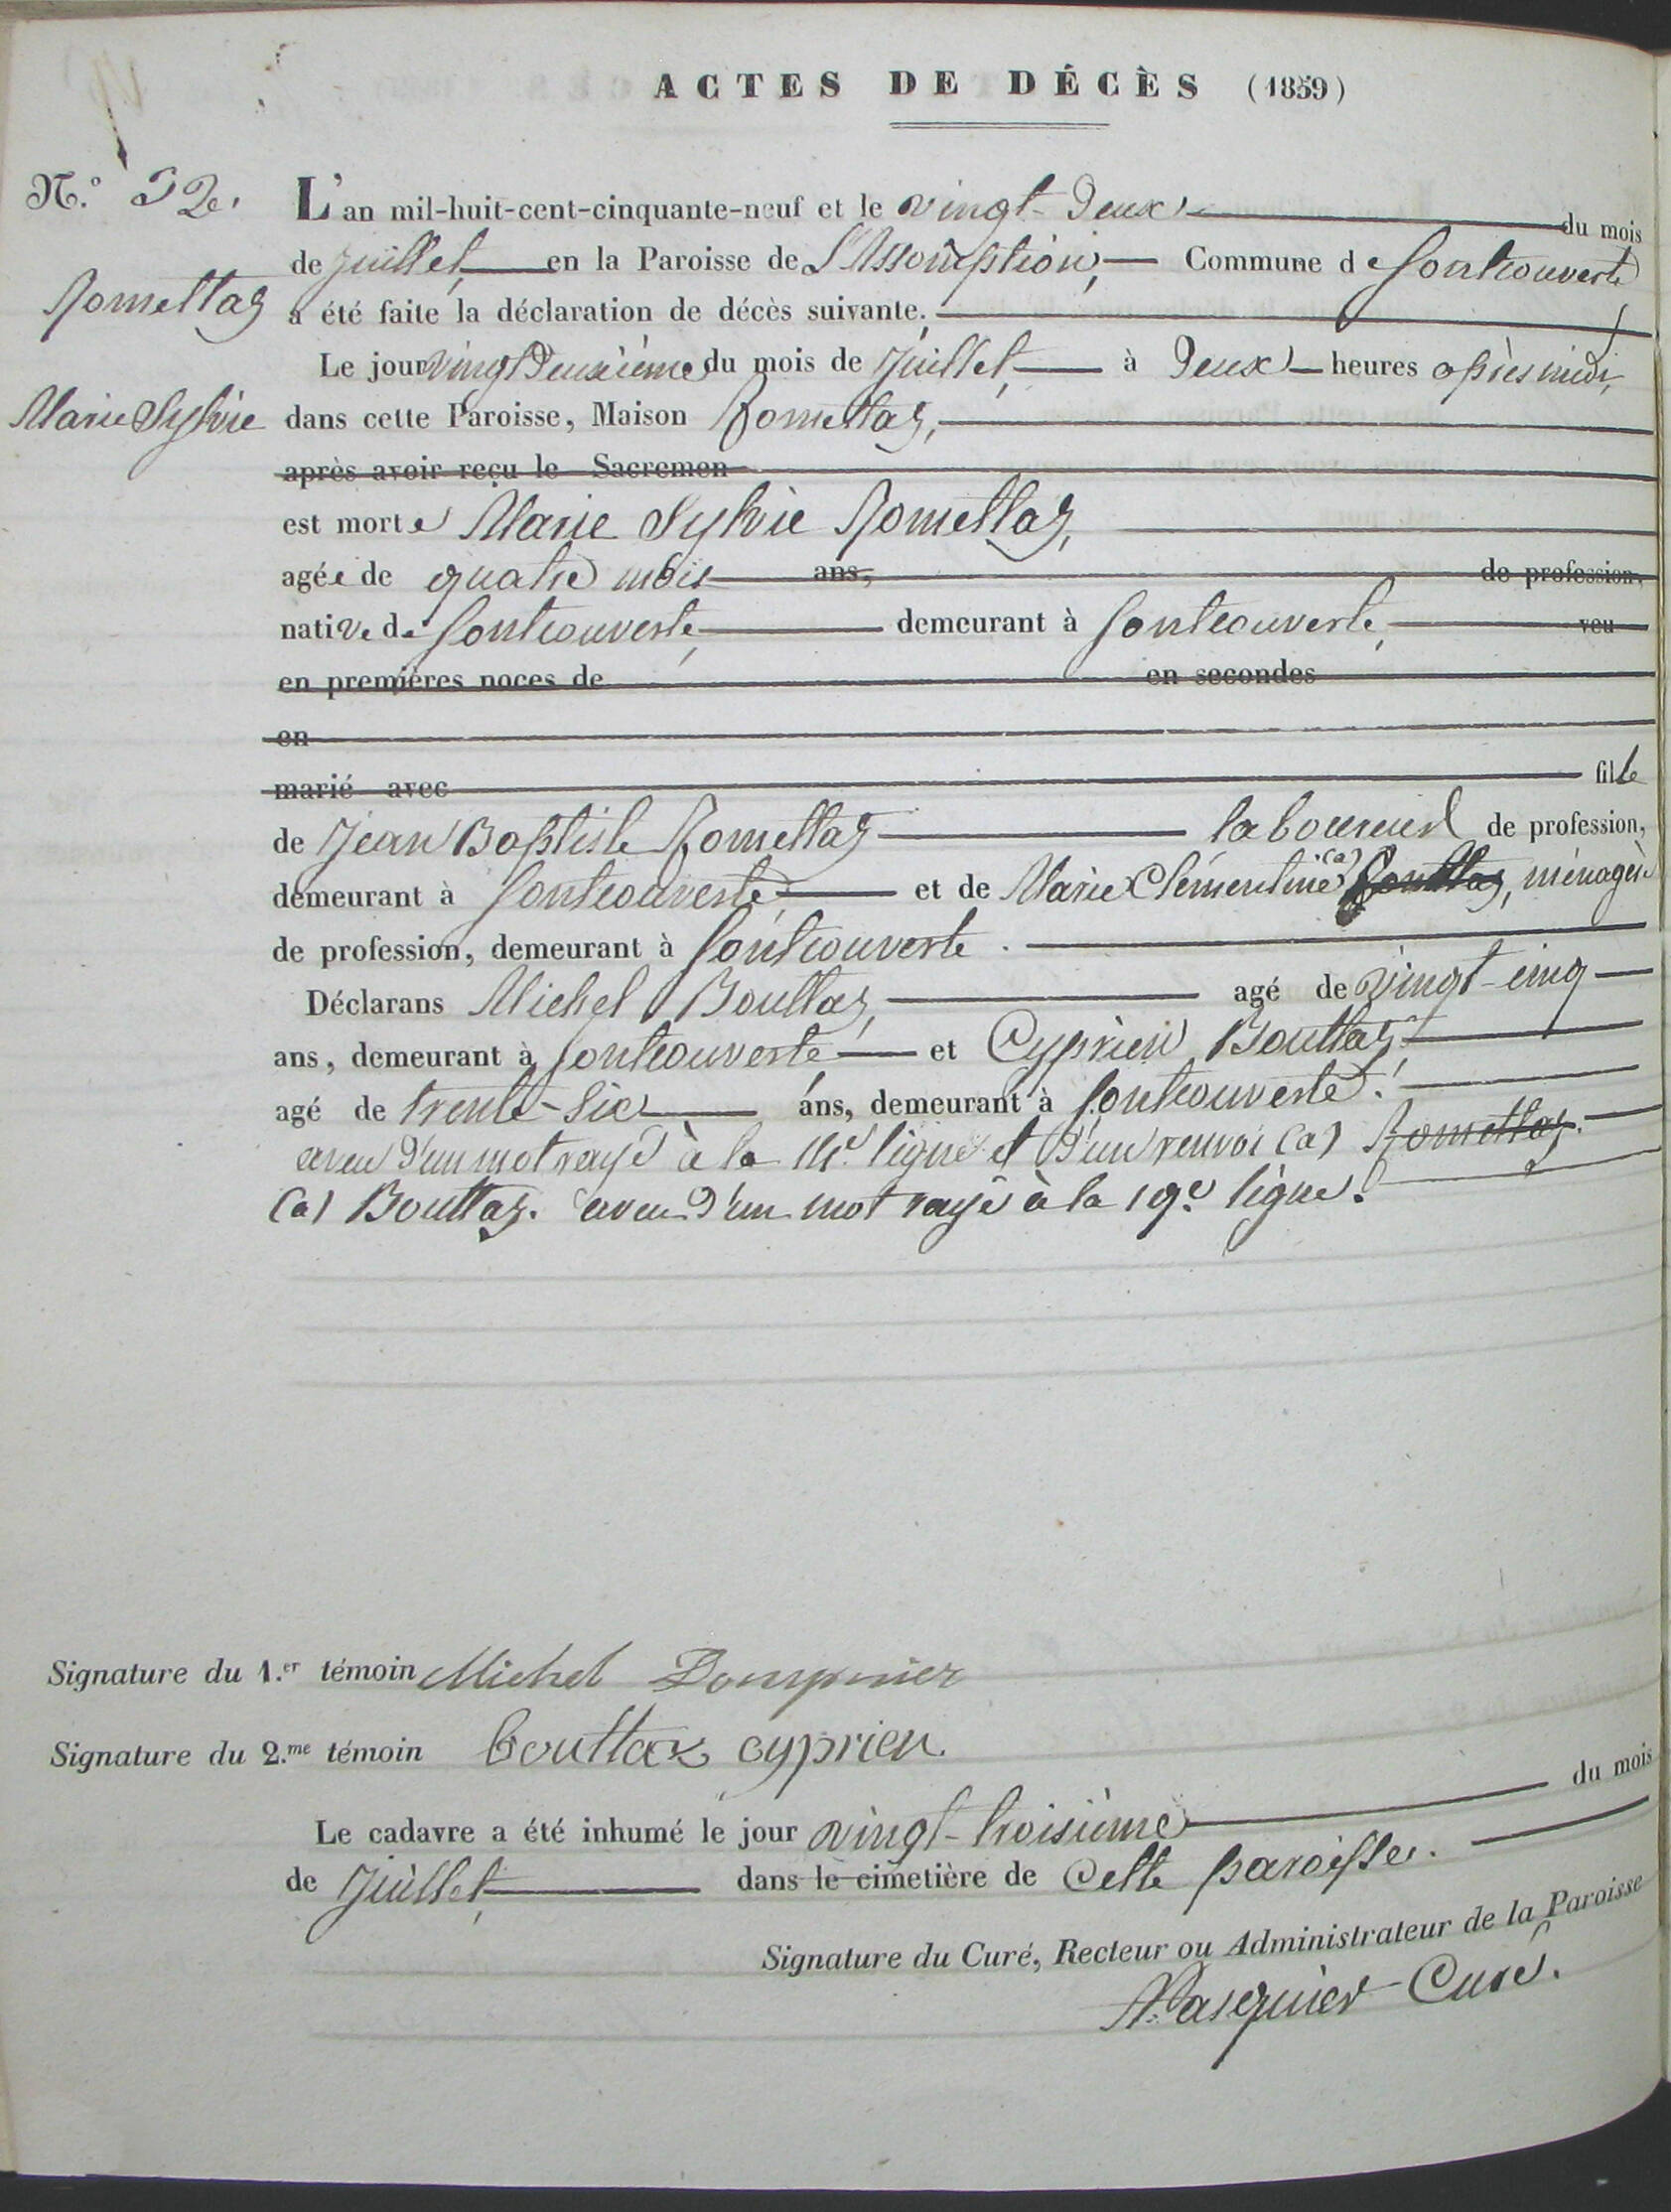 ACTES DE DÉCÈS (1859)
N.º 32.
L'an mil-huit-cent-cinquante-neuf et le vingt-deux du mois
de juillet, en la Paroisse de l'Assomption, Commune de Fontcouverte
Romettaz
a été faite la déclaration de décès suivante.
Le jour vingt deuxième du mois de Juillet, à deux heures après midi,
Marie Sylvie
dans cette Paroisse, Maison Romettaz,
après avoir reçu le Sacremen
est morte Marie Sylvie Romettaz,
agée de quatre mois ans, de profession,
native de Fontcouverte, demeurant à Fontcouverte, veu
en premières noces de en secondes
en
marié avec fille
de Jean Baptiste Romettaz laboureur de profession,
demeurant à Fontcouverte, et de Marie Clémentine (a) ménagère
de profession, demeurant à Fontcouverte.
Déclarans Michel Bouttaz, agé de vingt-cinq
ans, demeurant à Fontcouverte et Cyprien Bouttaz
agé de trente-six ans, demeurant à Fontcouverte.
aveu d'un mot rayé à la 14e ligne et d'un renvoi (a) Romettaz.
(a) Bouttaz. aveu d'un mot rayé à la 19e ligne.
Signature du 1.er témoin Michel Dompnier
Signature du 2.me témoin bouttaz cyprien
Le cadavre a été inhumé le jour vingt-troisième du mois
de Juillet, dans le cimetière de cette paroisse.
Signature du Curé, Recteur ou Administrateur de la Paroisse
Pasquier Curé.